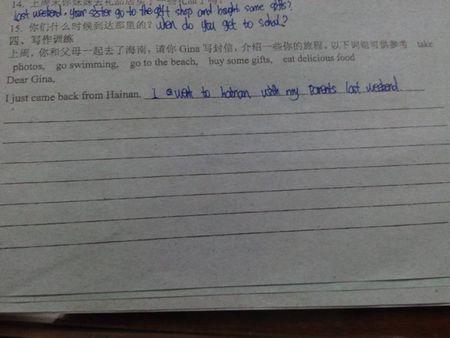 14. 上周末你妹妹去礼品店
last weekend, your sister go to the gift shop and bought some gifts?
15. 你们什么时候到达那里的? When do you get to school?
四、写作训练
上周,你和父母一起去了海南,请你给 Gina 写封信,介绍一些你的旅程,以下词组可供参考 take
photos, go swimming, go to the beach, buy some gifts, eat delicious food
Dear Gina,
I just came back from Hainan. I went to hainan with my parents last weekend